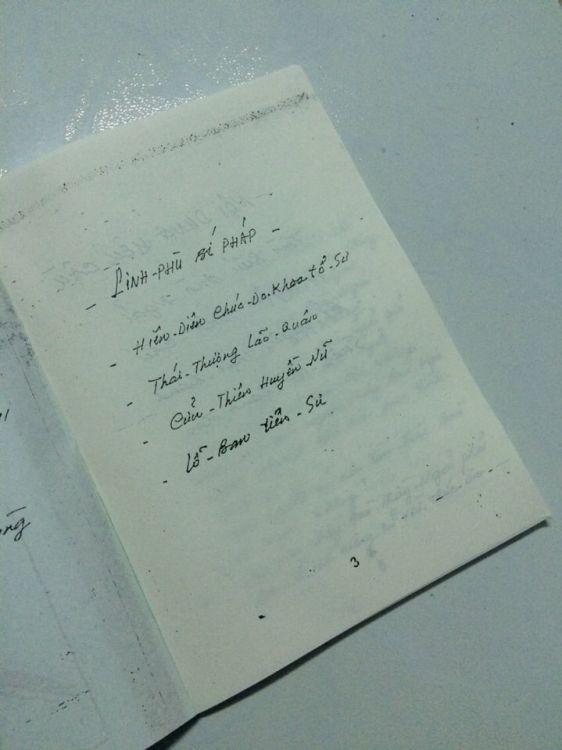 - LINH-PHÙ BÍ PHÁP -
- Hiển-Diên Chúc-Do-Khoa-Tổ-Sư
- Thái-Thượng Lão-Quân
- Cửu-Thiên Huyền-Nữ
- Lỗ-Ban tiên-Sư
3